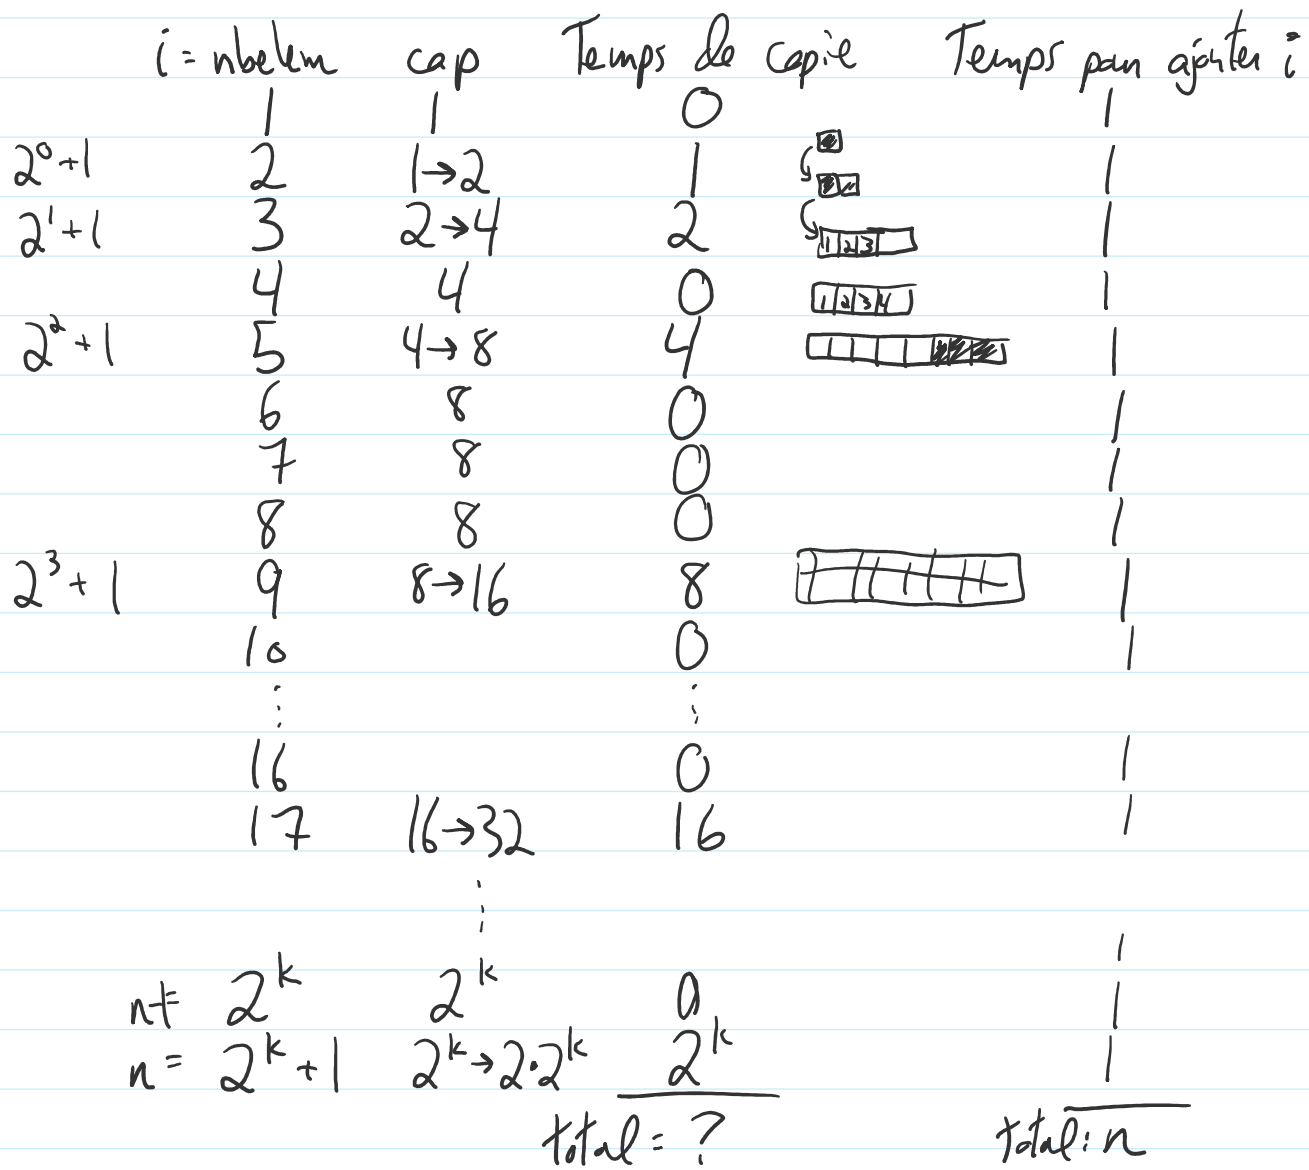 i = nbelem cap Temps de copie Temps pour ajouter i
1 1 0 1
2⁰+1 2 1→2 1 1
2¹+1 3 2→4 2 1 2 3 1
4 4 0 1 2 3 4 1
2²+1 5 4→8 4 1
6 8 0 1
7 8 0 1
8 8 0 1
2³+1 9 8→16 8 1
10 0 1
⋮ ⋮
16 0 1
17 16→32 16 1
⋮
1
n≠ 2ᵏ 2ᵏ 0 1
n = 2ᵏ+1 2ᵏ→2·2ᵏ 2ᵏ 1
total = ? total : n